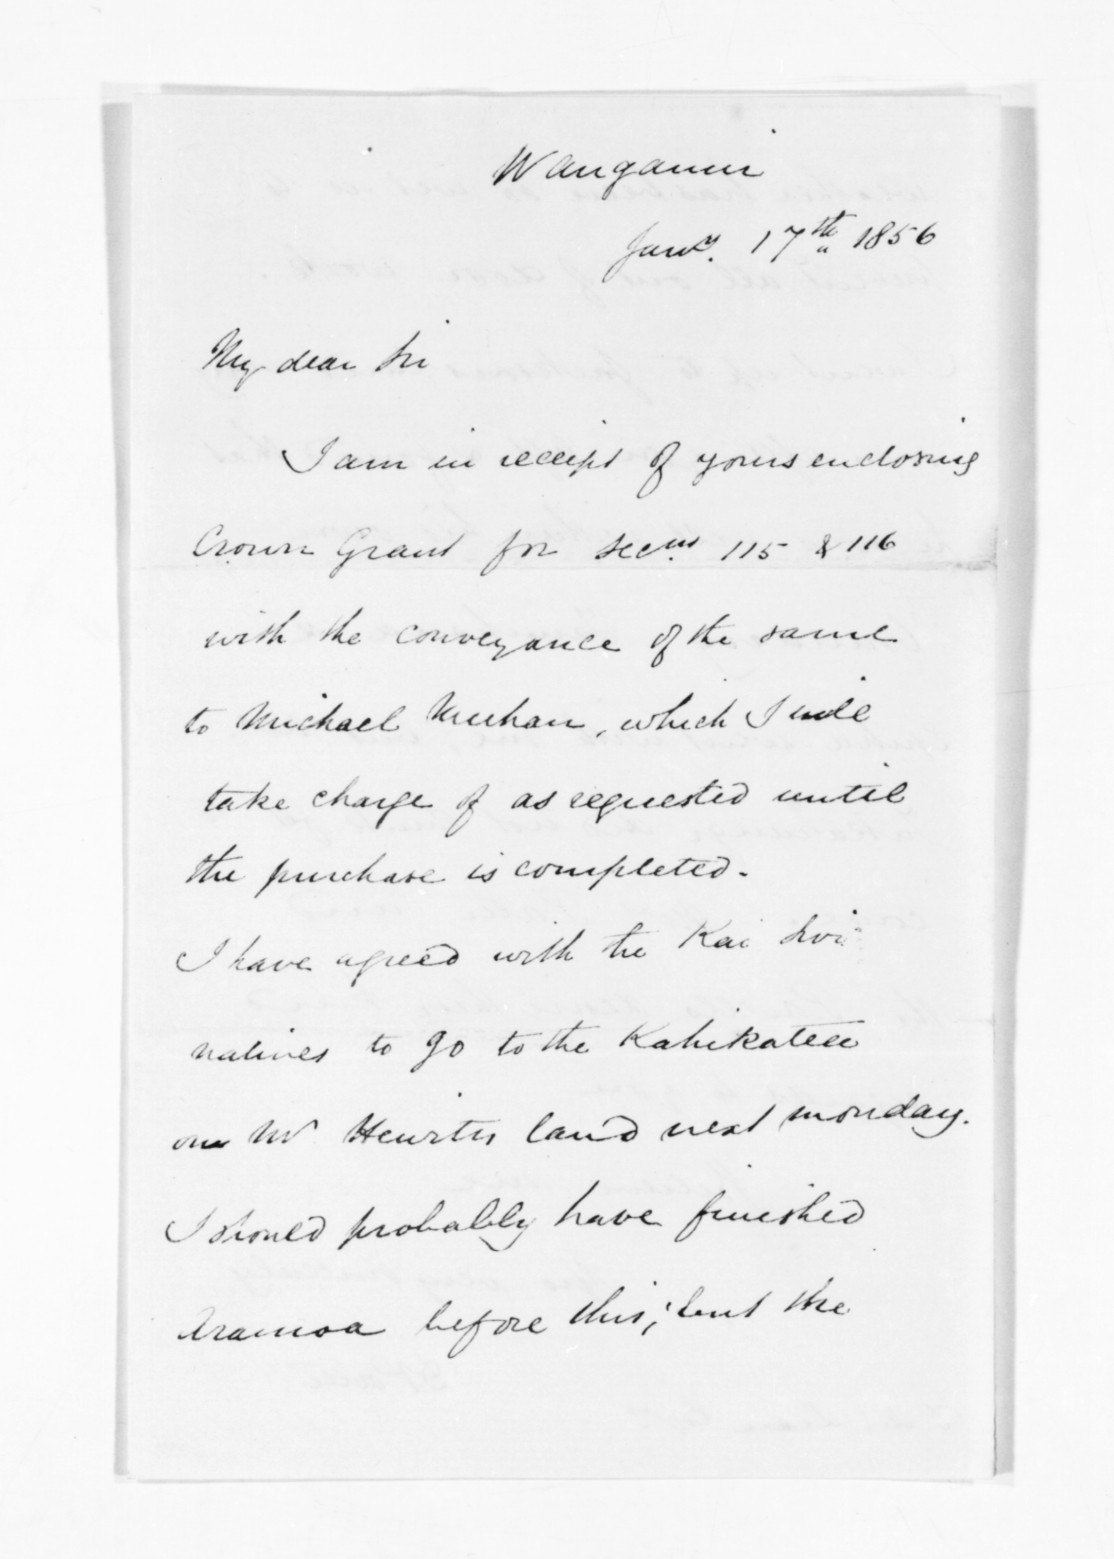 Wanganui
Jany. 17th 1856
My dear Sir
I am in receipt of yours enclosing
Crown Grant for Secns 115 & 116
with the conveyance of the same
to Michael Meehan, which I will
take charge of as requested until
the purchase is completed.
I have agreed with the Kai Iwi
natives to go to the Kahikatea
on Mr Hewitts land next monday.
I should probably have finished
Aramoa before this; but the